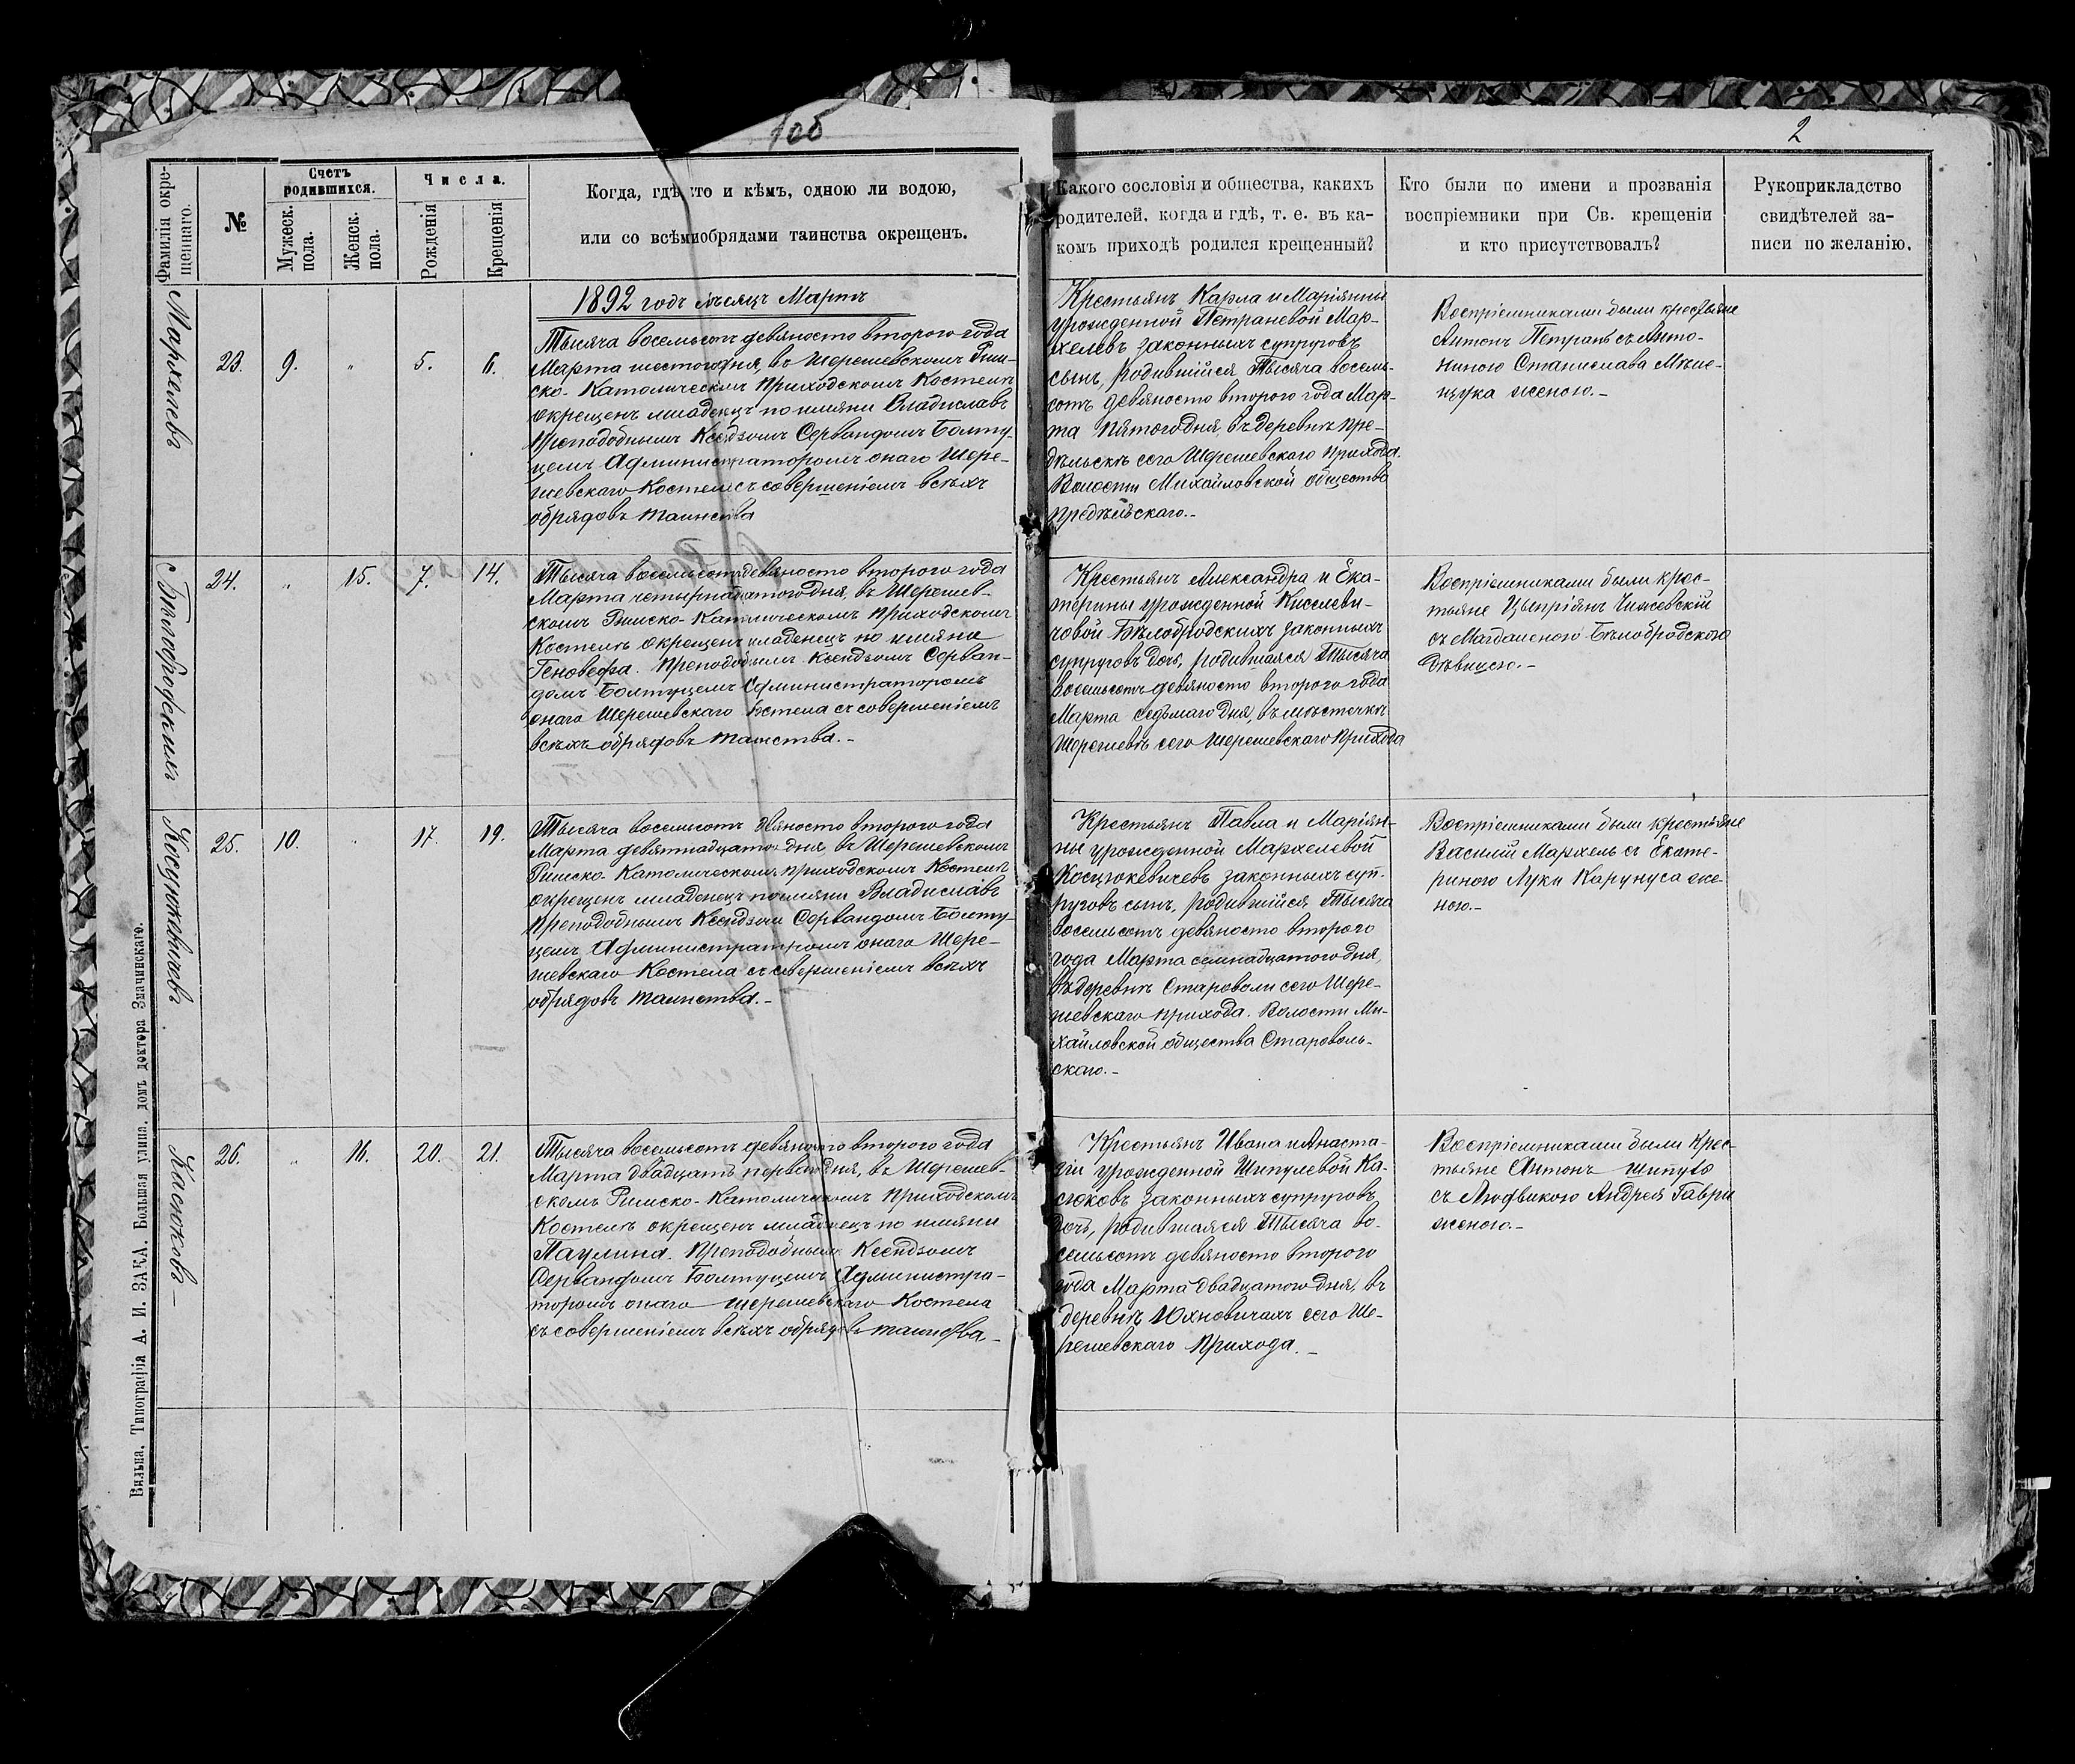 1об
2
Фамилія окре-
щеннаго.
№
Счетъ
родившихся.
Мужеск.
пола.
Женск.
пола.
Числа.
Рожденія
Крещенія
Когда, гдѣ, кто и кѣмъ, одною ли водою,
или со всѣми обрядами таинства окрещенъ.
Какого сословія и общества, какихъ
родителей, когда и гдѣ, т. е. въ ка-
комъ приходѣ родился крещенный?
Кто были по имени и прозванія
воспріемники при Св. крещеніи
и кто присутствовалъ?
Рукоприкладство
свидѣтелей за-
писи по желанію.
1892 годъ мѣсяцъ Мартъ
Мархелевъ
23. 9. " 5. 6.
Тысяча восемьсотъ девяносто второго года
Марта шестого дня, въ Шерешевскомъ Рим-
ско-Католическомъ Приходскомъ Костелѣ
окрещенъ младенецъ по имяни Владиславъ
Преподобнымъ Ксендзомъ Сервандомъ Болту-
цемъ Администраторомъ онаго Шере-
шевскаго Костела съ совершеніемъ всѣхъ
обрядовъ таинства
Крестьянъ Карла и Маріянны
урожденной Петраневой Мар-
хелевъ законныхъ супруговъ
сынъ, родившійся Тысяча восемь-
сотъ девяносто второго года Мар-
та пятого дня, въ деревнѣ Пре-
дѣльскѣ сего Шерешевскаго прихода.
Волости Михайловской общества
Предѣльскаго.-
Воспріемниками были крестьяне
Антонъ Петрань съ Анто-
ниною Станислава
женою.-
Бѣлобродскимъ
24. " 15. 7. 14.
Тысяча восемьсотъ девяносто второго года
Марта четырнадцатого дня, въ Шерешев-
скомъ Римско-Католическомъ Приходскомъ
Костелѣ окрещенъ младенецъ по имяни
Геновефа. Преподобнымъ Ксендзомъ Серван-
домъ Болтуцемъ Администраторомъ
онаго Шерешевскаго Костела съ совершеніемъ
всѣхъ обрядовъ таинства.-
Крестьянъ Александра и Ека-
терины урожденной Киселеви-
човой Бѣлобродскихъ законныхъ
супруговъ дочь, родившаяся Тысяча
восемьсотъ девяносто второго года
Марта седьмаго дня, въ мѣстечкѣ
Шерешевѣ сего Шерешевскаго прихода
Воспріемниками были крес-
тьяне Цыпріянъ Чижевскій
съ Магдаленою Бѣлобродскою
дѣвицею.-
Косцюкевичовъ
25. 10. " 17. 19.
Тысяча восемьсотъ девяносто второго года
Марта девятнадцатого дня, въ Шерешевскомъ
Римско-Католическомъ приходскомъ Костелѣ
окрещенъ младенецъ по имяни Владиславъ
Преподобнымъ Ксендзомъ Сервандомъ Болту-
цемъ Администраторомъ онаго Шере-
шевскаго Костела съ совершеніемъ всѣхъ
обрядовъ таинства.-
Крестьянъ Павла и Маріян-
ны урожденной Мархелевой
Косцюкевичевъ законныхъ суп-
руговъ сынъ, родившійся Тысяча
восемьсотъ девяносто второго
года Марта семнадцатого дня,
въ деревнѣ Староволи сего Шере-
шевскаго прихода. Волости Ми-
хайловской общества Староволь-
скаго.-
Воспріемниками были крестьяне
Василій Мархель съ Екате-
риною Луки Карунуса же-
ною.-
Касюковъ-
26. " 16. 20. 21.
Тысяча восемьсотъ девяносто второго года
Марта двадцать перваго дня, въ Шерешев-
скомъ Римско-Католическомъ Приходскомъ
Костелѣ окрещенъ младенецъ по имяни
Паулина. Преподобнымъ Ксендзомъ
Сервандомъ Болтуцемъ Администра-
торомъ онаго Шерешевскаго Костела
съ совершеніемъ всѣхъ обрядовъ таинства-
Крестьянъ Ивана и Анаста-
зіи урожденной Шипулевой Ка-
сюковъ законныхъ супруговъ
дочь, родившаяся Тысяча во-
семьсотъ девяносто второго
года Марта двадцатого дня, въ
деревнѣ Юхновичахъ сего Ше-
решевскаго Прихода.-
Воспріемниками были Крес-
тьяне Антонъ Шипуло
съ Людвикою Андрея Гаври
женою.-
Вильна. Типографія А. И. ЗАКА. Большая улица, домъ доктора Змачинскаго.